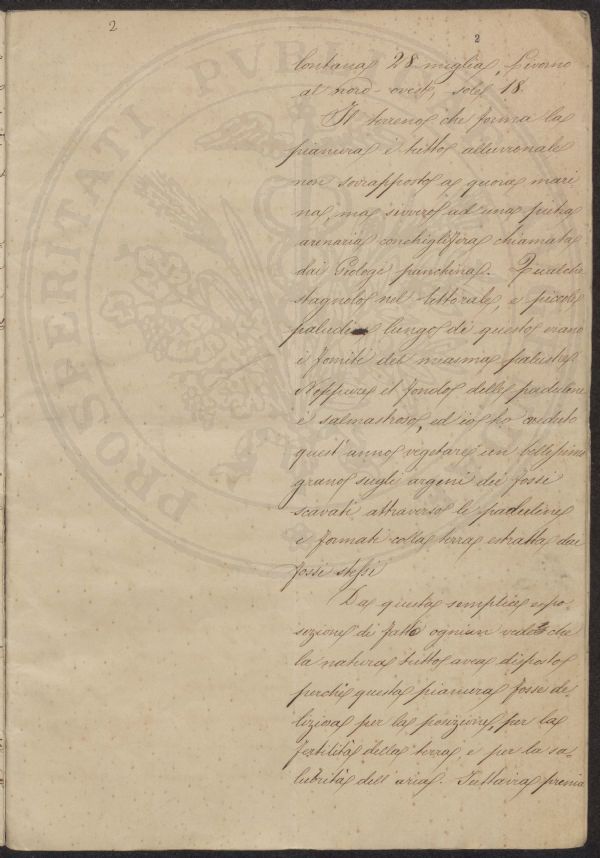 2
2
lontana 28 miglia, Livorno
al nord-ovest, sole 18.
Il terreno che forma la
pianura è tutto alluvionale
non sovrapposto a quora mari
na, ma sivvero ad una pietra
arenaria conchiglifera chiamata
dai Geologi panchina. Qualche
stagnolo nel littorale, e piccole
paludi lungo di questo erano
i fomiti del miasma palustre
Neppure il fondo delle padulane
è salmastroso, ed io ho veduto
quest'anno vegetare un bellissimo
grano sugli argini dei fossi
scavati attraverso le paduline
e formati colla terra estratta dai
fossi stessi
Da questa semplice espo-
sizione di fatti ognun vede che
la natura tutto avea disposto
perchè questa pianura fosse de-
liziosa per la posizione, per la
fertilità della terra e per la sa-
lubrità dell'aria. Tuttavia prima
PROSPERITATI PVBLI